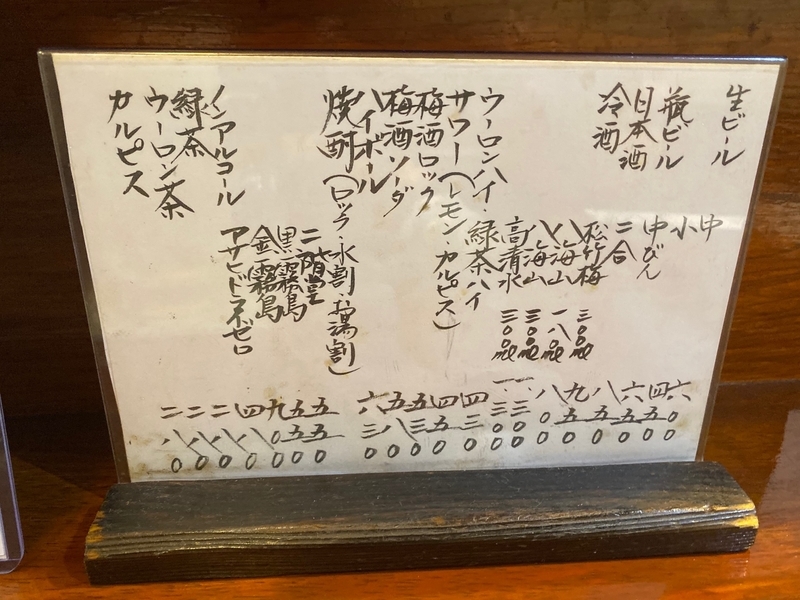 生ビール 中 六〇〇
小 四五〇
瓶ビール 中びん 六五〇
日本酒 二合 八五〇
冷酒 松竹梅 三〇〇ml 九五〇
八海山 一八〇ml 八〇〇
八海山 三〇〇ml 一三〇〇
高清水 三〇〇ml 一三〇〇
ウーロンハイ・緑茶ハイ 四三〇
サワー（レモン・カルピス） 四五〇
梅酒ロック 五三〇
梅酒ソーダ 五八〇
ハイボール 六三〇
焼酎（ロック・水割・お湯割）
二階堂 五五〇
黒霧島 五五〇
金霧島 九〇〇
ノンアルコール アサヒドライゼロ 四八〇
緑茶 二八〇
ウーロン茶 二八〇
カルピス 二八〇